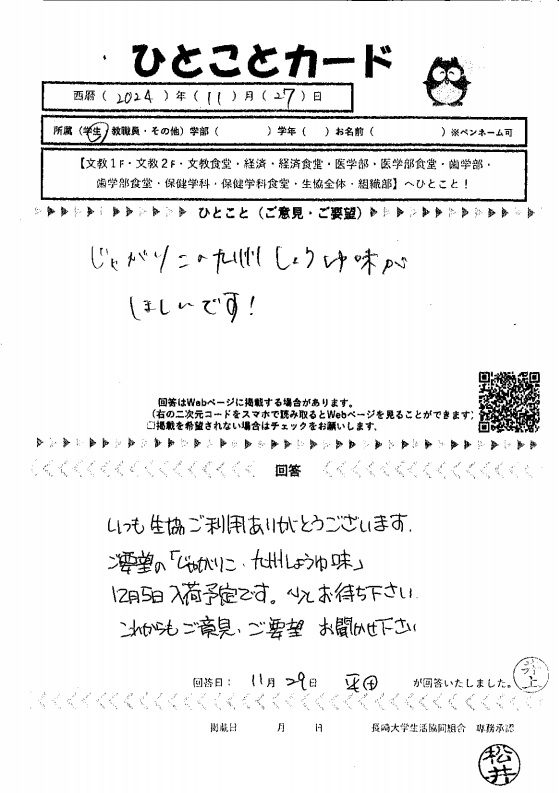 ひとことカード
西暦（2024）年（11）月（27）日
所属（学生・教職員・その他）学部（　　　）学年（　）お名前（　　　　）※ペンネーム可
【文教1F・文教2F・文教食堂・経済・経済食堂・医学部・医学部食堂・歯学部・
歯学部食堂・保健学科・保健学科食堂・生協全体・組織部】へひとこと！
ひとこと（ご意見・ご要望）
じゃがりこの九州しょうゆ味が
ほしいです！
回答はWebページに掲載する場合があります。
（右の二次元コードをスマホで読み取るとWebページを見ることができます）
□掲載を希望されない場合はチェックをお願いします。
回答
いつも生協ご利用ありがとうございます.
ご要望の「じゃがりこ・九州しょうゆ味」
12月5日入荷予定です。少々お待ち下さい.
これからもご意見、ご要望 お聞かせ下さい
回答日： 11月29日 平田 が回答いたしました。
井上
掲載日　　月　　日　　長崎大学生活協同組合　専務承認
松井